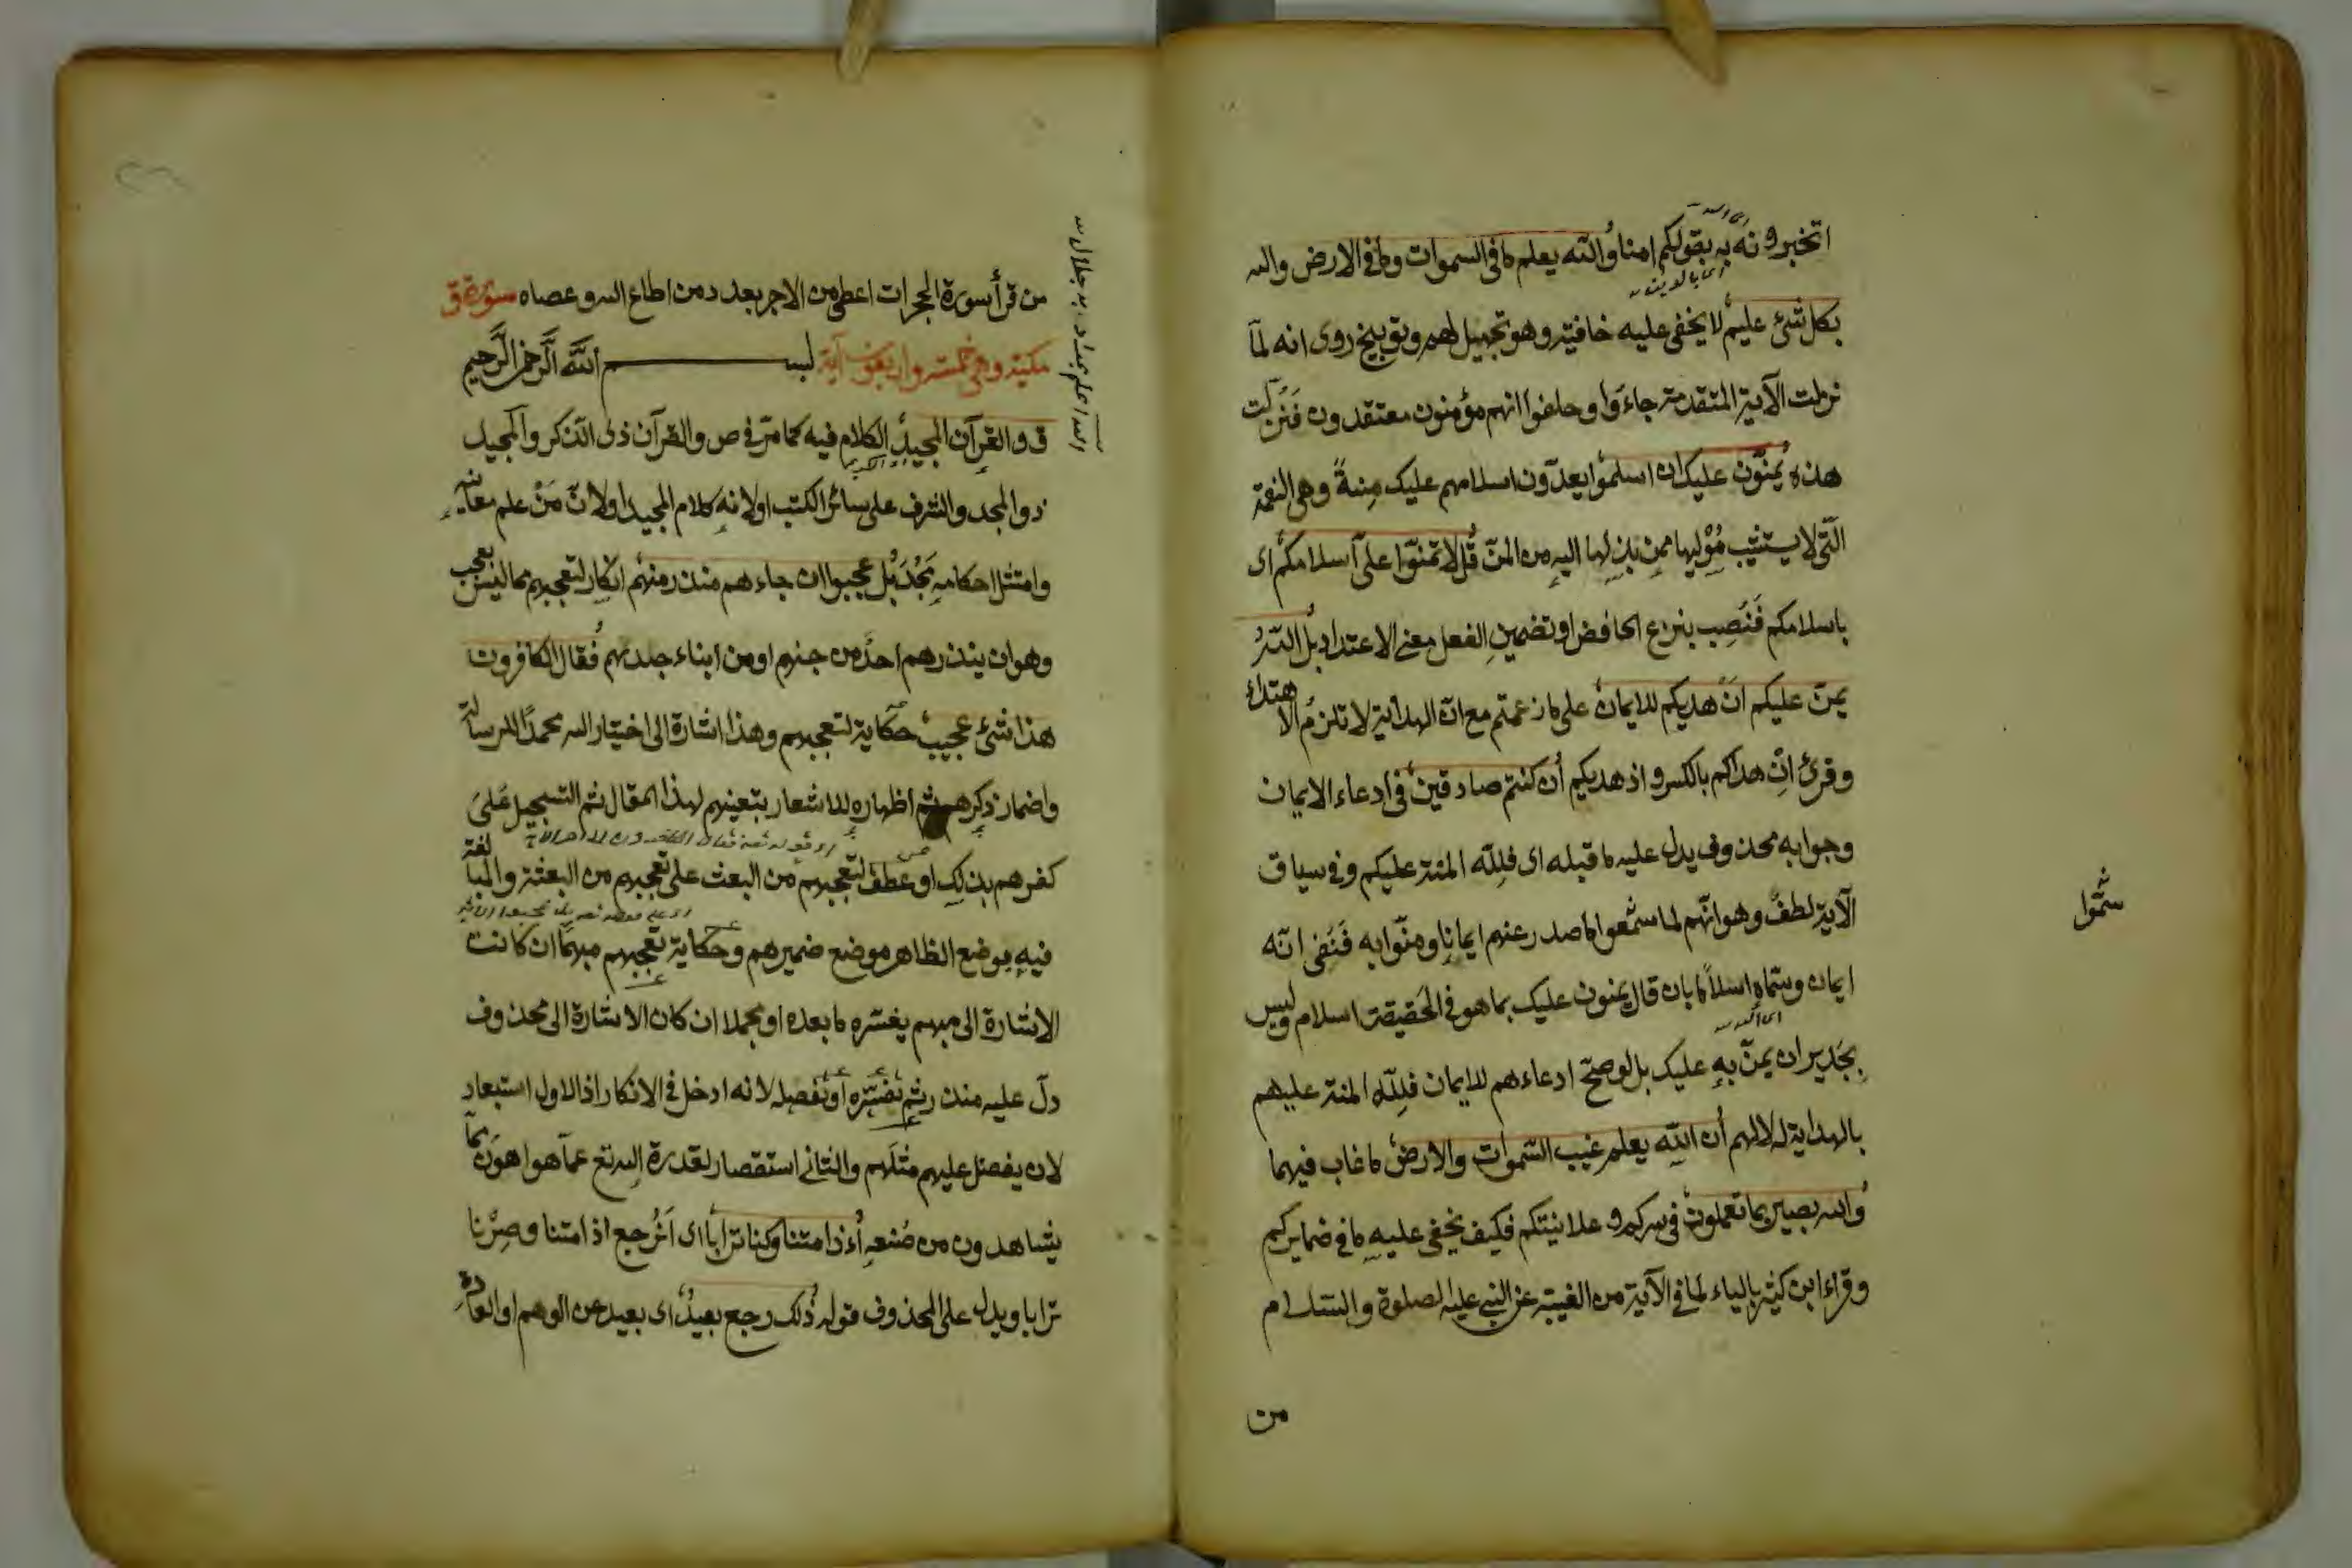 اتخبرونه به بقولكم امنا والله يعلم ما في السموات وما في الارض والله
بكل شئ عليم لا يخفى عليه خافية وهو تجهيل لهم وتوبيخ روى انه لما
نزلت الآية المتقدمة جاءوا وحلفوا انهم مؤمنون معتقدون فنزلت
هذه يمنون عليك ان اسلموا يعدون اسلامهم عليك منة وهى النعمة
التى لا يستثيب موليها ممن يزلها اليه من المن قل لا تمنوا على اسلامكم اى
باسلامكم فنصب بنزع الخافض او تضمين الفعل معنى الاعتداد بل الله
يمن عليكم ان هديكم للايمان على ما زعمتم مع ان الهداية لا تلزم الاهتداء
وقرئ ان هداكم بالكسر و اذ هديكم ان كنتم صادقين فى ادعاء الايمان
وجوابه محذوف يدل عليه ما قبله اى فلله المنة عليكم وفى سياق
الآية لطف وهو انهم لما سموا ما صدر عنهم ايمانا ومنوا به فنفى انه
ايمان وسماه اسلاما بان قال يمنون عليك بما هو فى الحقيقة اسلام وليس
بجدير ان يمن به عليك بل لو صح ادعاءهم للايمان فلله المنة عليهم
بالهداية له لا لهم ان الله يعلم غيب السموات والارض ما غاب فيهما
والله بصير بما تعملون فى سركم و علانيتكم فكيف يخفى عليه ما فى ضمايركم
وقراء ابن كثير بالياء لما فى الآية من الغيبة عن النبى عليه الصلوة والسلام
من
سموا
من قرأ سورة الحجرات اعطى من الاجر بعدد من اطاع الله و عصاه سورة ق
مكية وهى خمس واربعون آية بسم الله الرحمن الرحيم
ق والقرآن المجيد الكلام فيه كما مر فى ص والقرآن ذى الذكر والمجيد
ذو المجد والشرف على سائر الكتب او لانه كلام المجيد او لان من علم معانيه
وامتثل احكامه مجد بل عجبوا ان جاءهم منذر منهم انكار لتعجبهم مما ليس بعجب
وهو ان ينذرهم احد من جنسهم او من ابناء جلدتهم فقال الكافرون
هذا شئ عجيب حكاية لتعجبهم وهذا اشارة الى اختيار الله محمدا للرسالة
واضمار ذكرهم ثم اظهاره للاشعار بتعينهم لهذا المقال ثم التسجيل على
كفرهم بذلك او عطف لتعجبهم من البعث على تعجبهم من البعثة والمبالغة
فيه بوضع الظاهر موضع ضميرهم وحكاية تعجبهم مبهما ان كانت
الاشارة الى مبهم يفسره ما بعده او مجملا ان كان الاشارة الى محذوف
دل عليه منذر ثم تفسيره او تفصيله لانه ادخل فى الانكار اذ الاول استبعاد
لان يفضل عليهم مثلهم والثانى استقصار لقدرة الله تع عما هو اهون مما
يشاهدون من صنعه أءذا متنا وكنا ترابا اى انرجع اذا متنا وصرنا
ترابا ويدل على المحذوف قوله ذلك رجع بعيد اى بعيد عن الوهم او العادة